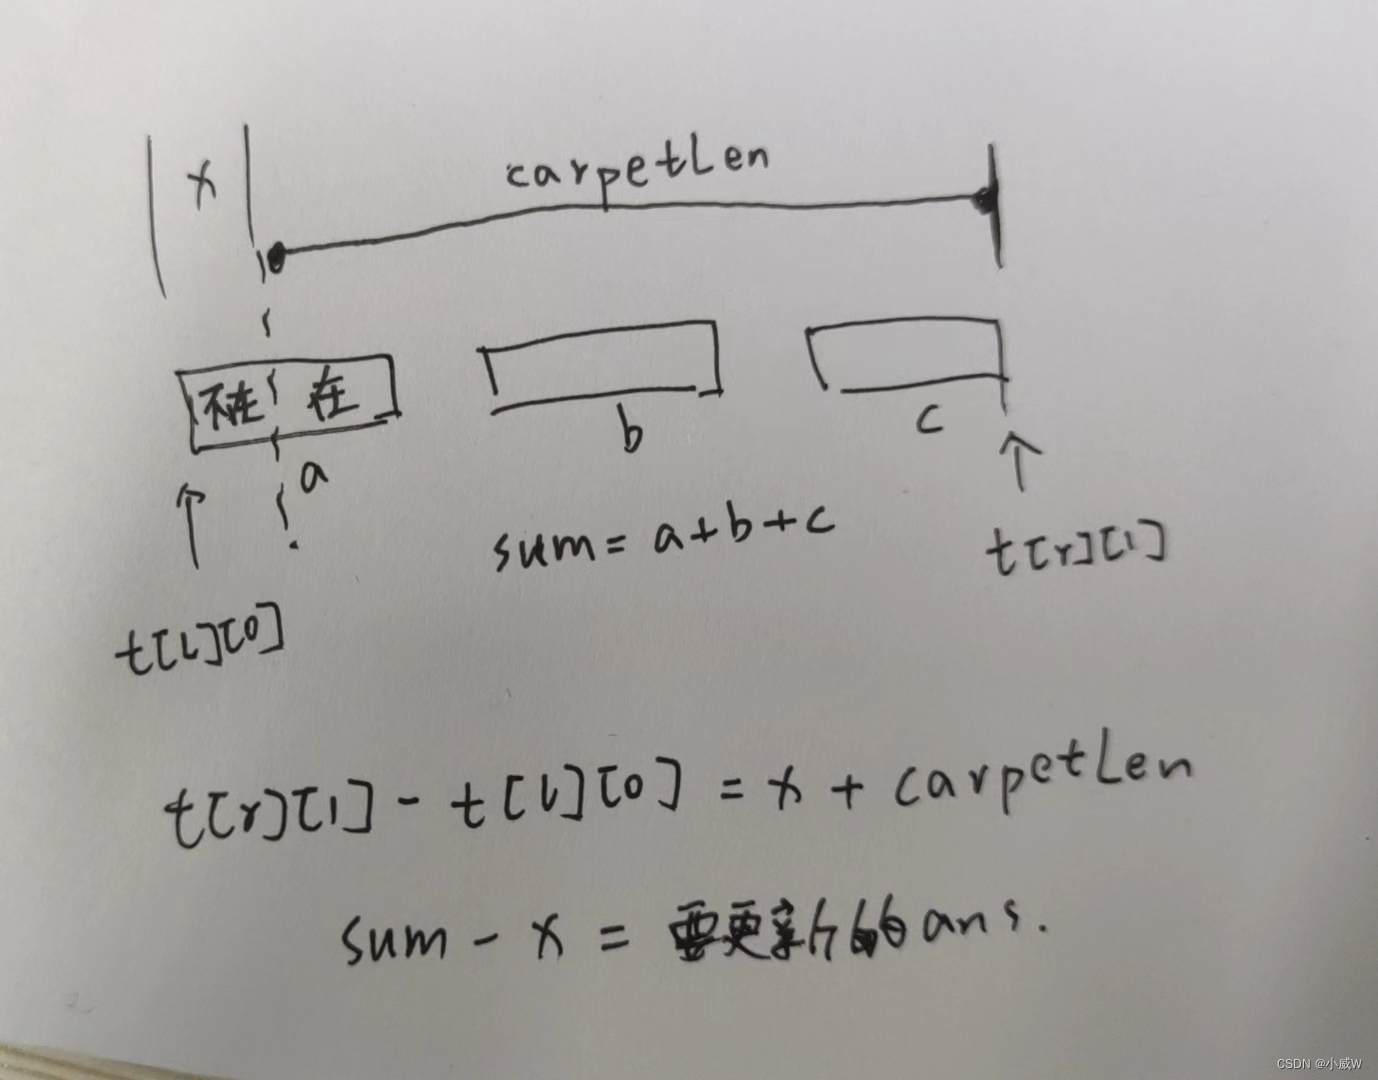 x
carpetLen
不在 在
a
b
c
sum = a+b+c
t[r][1]
t[l][0]
t[r][1] - t[l][0] = x + carpetLen
sum - x = 要更新的 ans.
CSDN @小威W